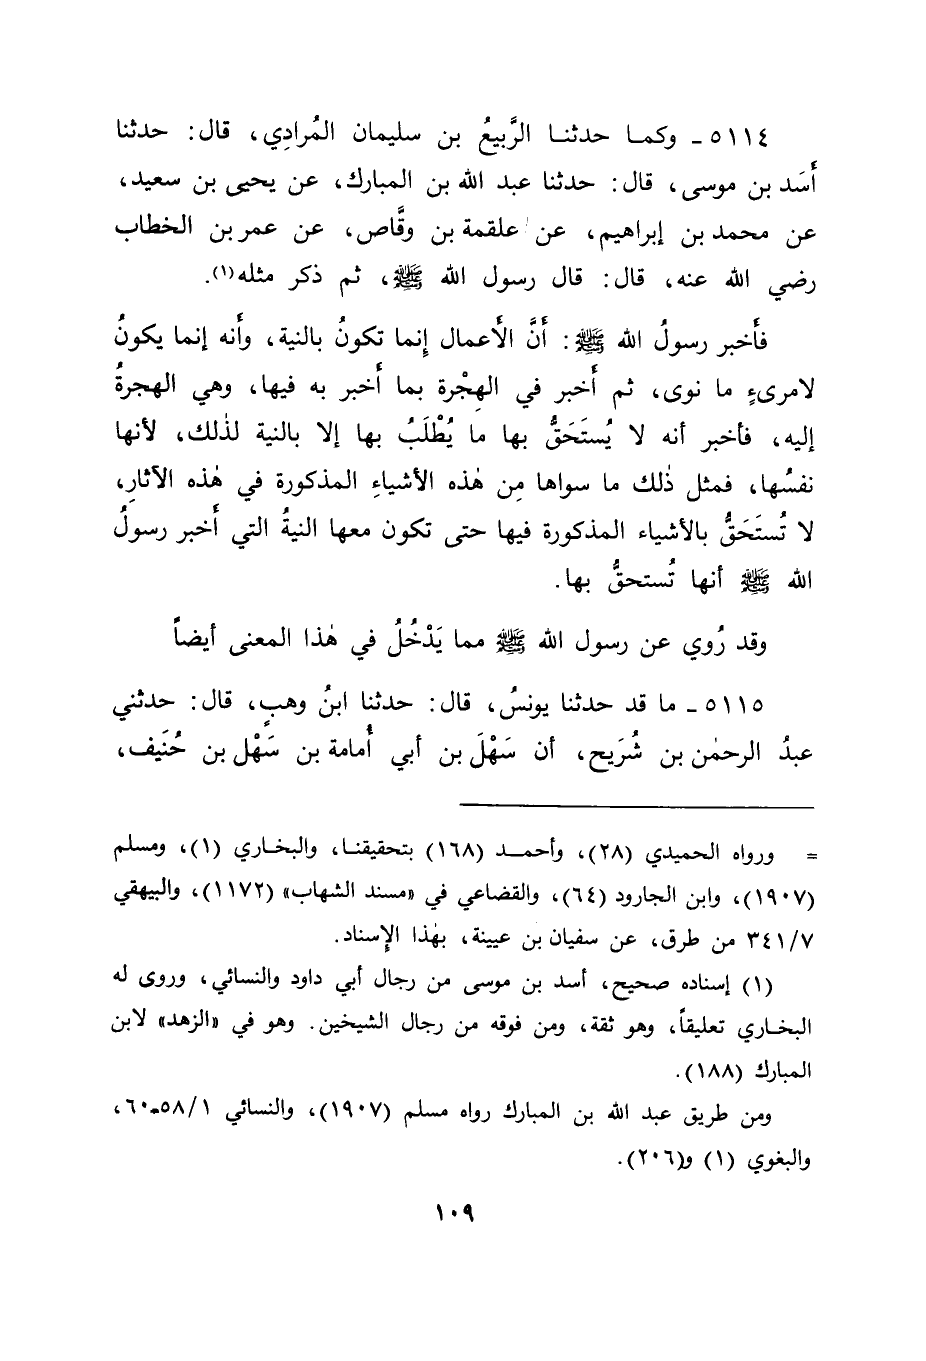 ٥١١٤ ـ وكما حدثنا الرَّبيعُ بن سليمان المُرادِي، قال: حدثنا
أَسَد بن موسى، قال: حدثنا عبد الله بن المبارك، عن يحيى بن سعيد،
عن محمد بن إبراهيم، عن علقمة بن وقَّاص، عن عمر بن الخطاب
رضي الله عنه، قال: قال رسول الله ﷺ، ثم ذكر مثله(١).
فأَخبر رسولُ الله ﷺ: أَنَّ الأَعمال إِنما تكونُ بالنية، وأَنه إنما يكونُ
لامرىءٍ ما نوى، ثم أَخبر في الهِجْرة بما أَخبر به فيها، وهي الهجرةُ
إليه، فأخبر أنه لا يُستَحَقُّ بها ما يُطْلَبُ بها إلا بالنية لذٰلك، لأنها
نفسُها، فمثل ذٰلك ما سواها مِن هٰذه الأشياءِ المذكورة في هٰذه الآثارِ،
لا تُستَحَقُّ بالأشياء المذكورة فيها حتى تكون معها النيةُ التي أَخبر رسولُ
الله ﷺ أنها تُستحقُّ بها.
وقد رُوي عن رسول الله ﷺ مما يَدْخُلُ في هٰذا المعنى أيضاً
٥١١٥ ـ ما قد حدثنا يونسُ، قال: حدثنا ابنُ وهبٍ، قال: حدثني
عبدُ الرحمٰن بن شُرَيح، أن سَهْلَ بن أبي أُمامة بن سَهْل بن حُنَيف،
= ورواه الحميدي (٢٨)، وأحمد (١٦٨) بتحقيقنا، والبخاري (١)، ومسلم
(١٩٠٧)، وابن الجارود (٦٤)، والقضاعي في «مسند الشهاب» (١١٧٢)، والبيهقي
٣٤١/٧ من طرق، عن سفيان بن عيينة، بهٰذا الإسناد.
(١) إسناده صحيح، أسد بن موسى من رجال أبي داود والنسائي، وروى له
البخاري تعليقاً، وهو ثقة، ومن فوقه من رجال الشيخين. وهو في «الزهد» لابن
المبارك (١٨٨).
ومن طريق عبد الله بن المبارك رواه مسلم (١٩٠٧)، والنسائي ٥٨/١-٦٠،
والبغوي (١) و(٢٠٦).
١٠٩